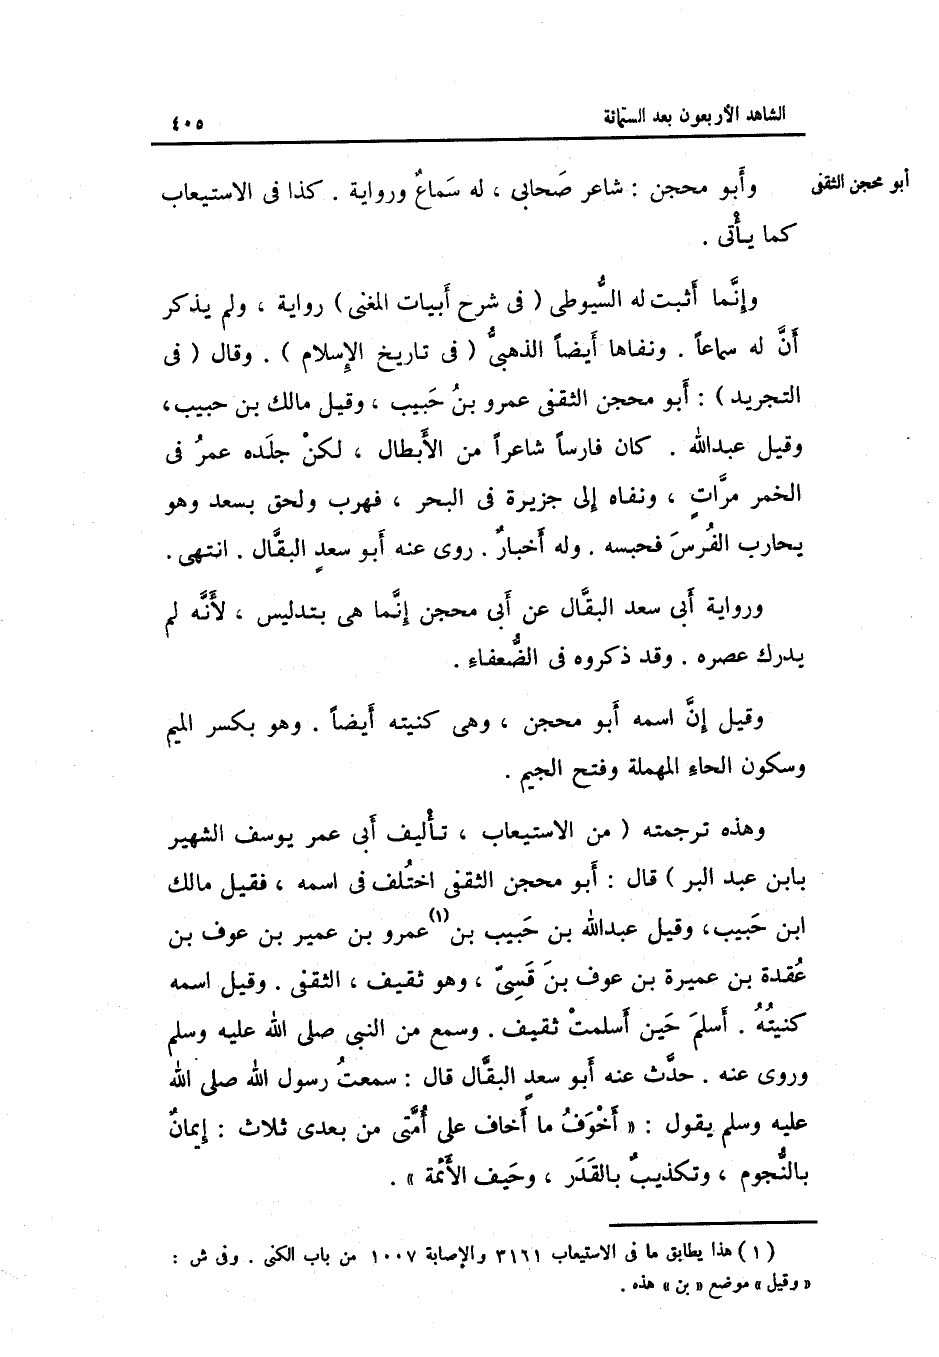 الشاهد الأربعون بعد الستمائة ٤٠٥
أبو محجن الثقفى
وأَبو محجن : شاعر صَحابى ، له سَماعٌ ورواية . كذا فى الاستيعاب
كما يأْتى .
وإِنَّما أَثبت له السُّيوطى ( فى شرح أَبيات المغنى ) رواية ، ولم يذكر
أَنَّ له سماعاً . ونفاها أَيضاً الذهبىُّ ( فى تاريخ الإِسلام ) . وقال ( فى
التجريد ) : أَبو محجن الثقفى عمرو بنُ حَبيب ، وقيل مالك بن حبيب،
وقيل عبدالله . كان فارساً شاعراً من الأَبطال ، لكنْ جلَده عمرُ فى
الخمر مرَّاتٍ ، ونفاه إلى جزيرة فى البحر ، فهرب ولحق بسعد وهو
يحارب الفُرسَ فحبسه . وله أَخبارٌ . روى عنه أَبو سعدٍ البقَّال . انتهى .
ورواية أَبى سعد البقَّال عن أَبى محجن إِنَّما هى بتدليس ، لأَنَّه لم
يدرك عصره . وقد ذكروه فى الضُّعفاءِ .
وقيل إِنَّ اسمه أَبو محجن ، وهى كنيته أَيضاً . وهو بكسر الميم
وسكون الحاءِ المهملة وفتح الجيم .
وهذه ترجمته ( من الاستيعاب ، تأْليف أَبى عمر يوسف الشهير
بابن عبد البر ) قال : أَبو محجن الثقفى اختُلف فى اسمه ، فقيل مالك
ابن حَبيب، وقيل عبدالله بن حَبيب بن(١) عمرو بن عمير بن عوف بن
عُقدة بن عميرة بن عوف بنَ قَسِىّ ، وهو ثقيف ، الثقفى . وقيل اسمه
كنيتُهُ . أَسلمَ حَين أَسلمتْ ثقيف . وسمع من النبى صلى الله عليه وسلم
وروى عنه . حدَّث عنه أَبو سعدٍ البقَّال قال : سمعتُ رسول الله صلى الله
عليه وسلم يقول : « أَخْوَفُ ما أَخاف على أُمَّتى من بعدى ثلاث : إِيمانٌ
بالنُّجوم ، وتكذيبٌ بالقَدَر ، وحَيف الأَئمة » .
(١) هذا يطابق ما فى الاستيعاب ٣١٦١ والإصابة ١٠٠٧ من باب الكنى . وفى ش :
« وقيل » موضع « بن » هذه .